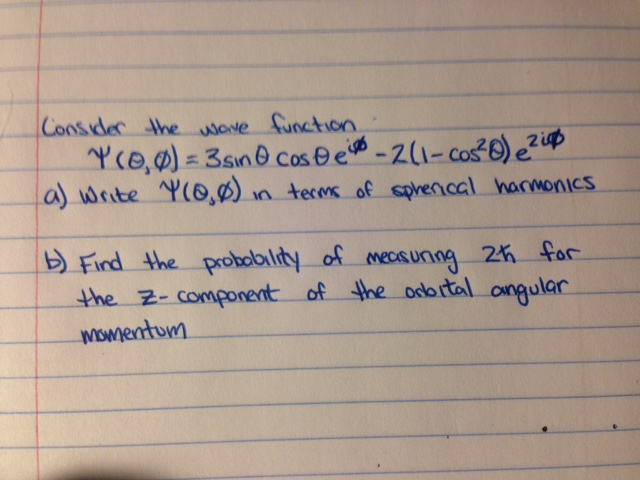 Consider the wave function
Ψ(θ,φ) = 3sinθ cosθe^{iφ} - 2(1-cos²θ)e^{2iφ}
a) Write Ψ(θ,φ) in terms of spherical harmonics
b) Find the probability of measuring 2ħ for
the z-component of the orbital angular
momentum